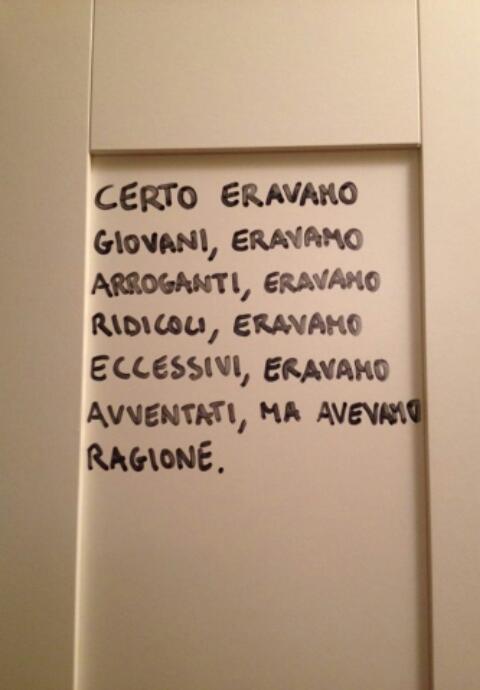 CERTO ERAVAMO
GIOVANI, ERAVAMO
ARROGANTI, ERAVAMO
RIDICOLI, ERAVAMO
ECCESSIVI, ERAVAMO
AVVENTATI, MA AVEVAMO
RAGIONE.